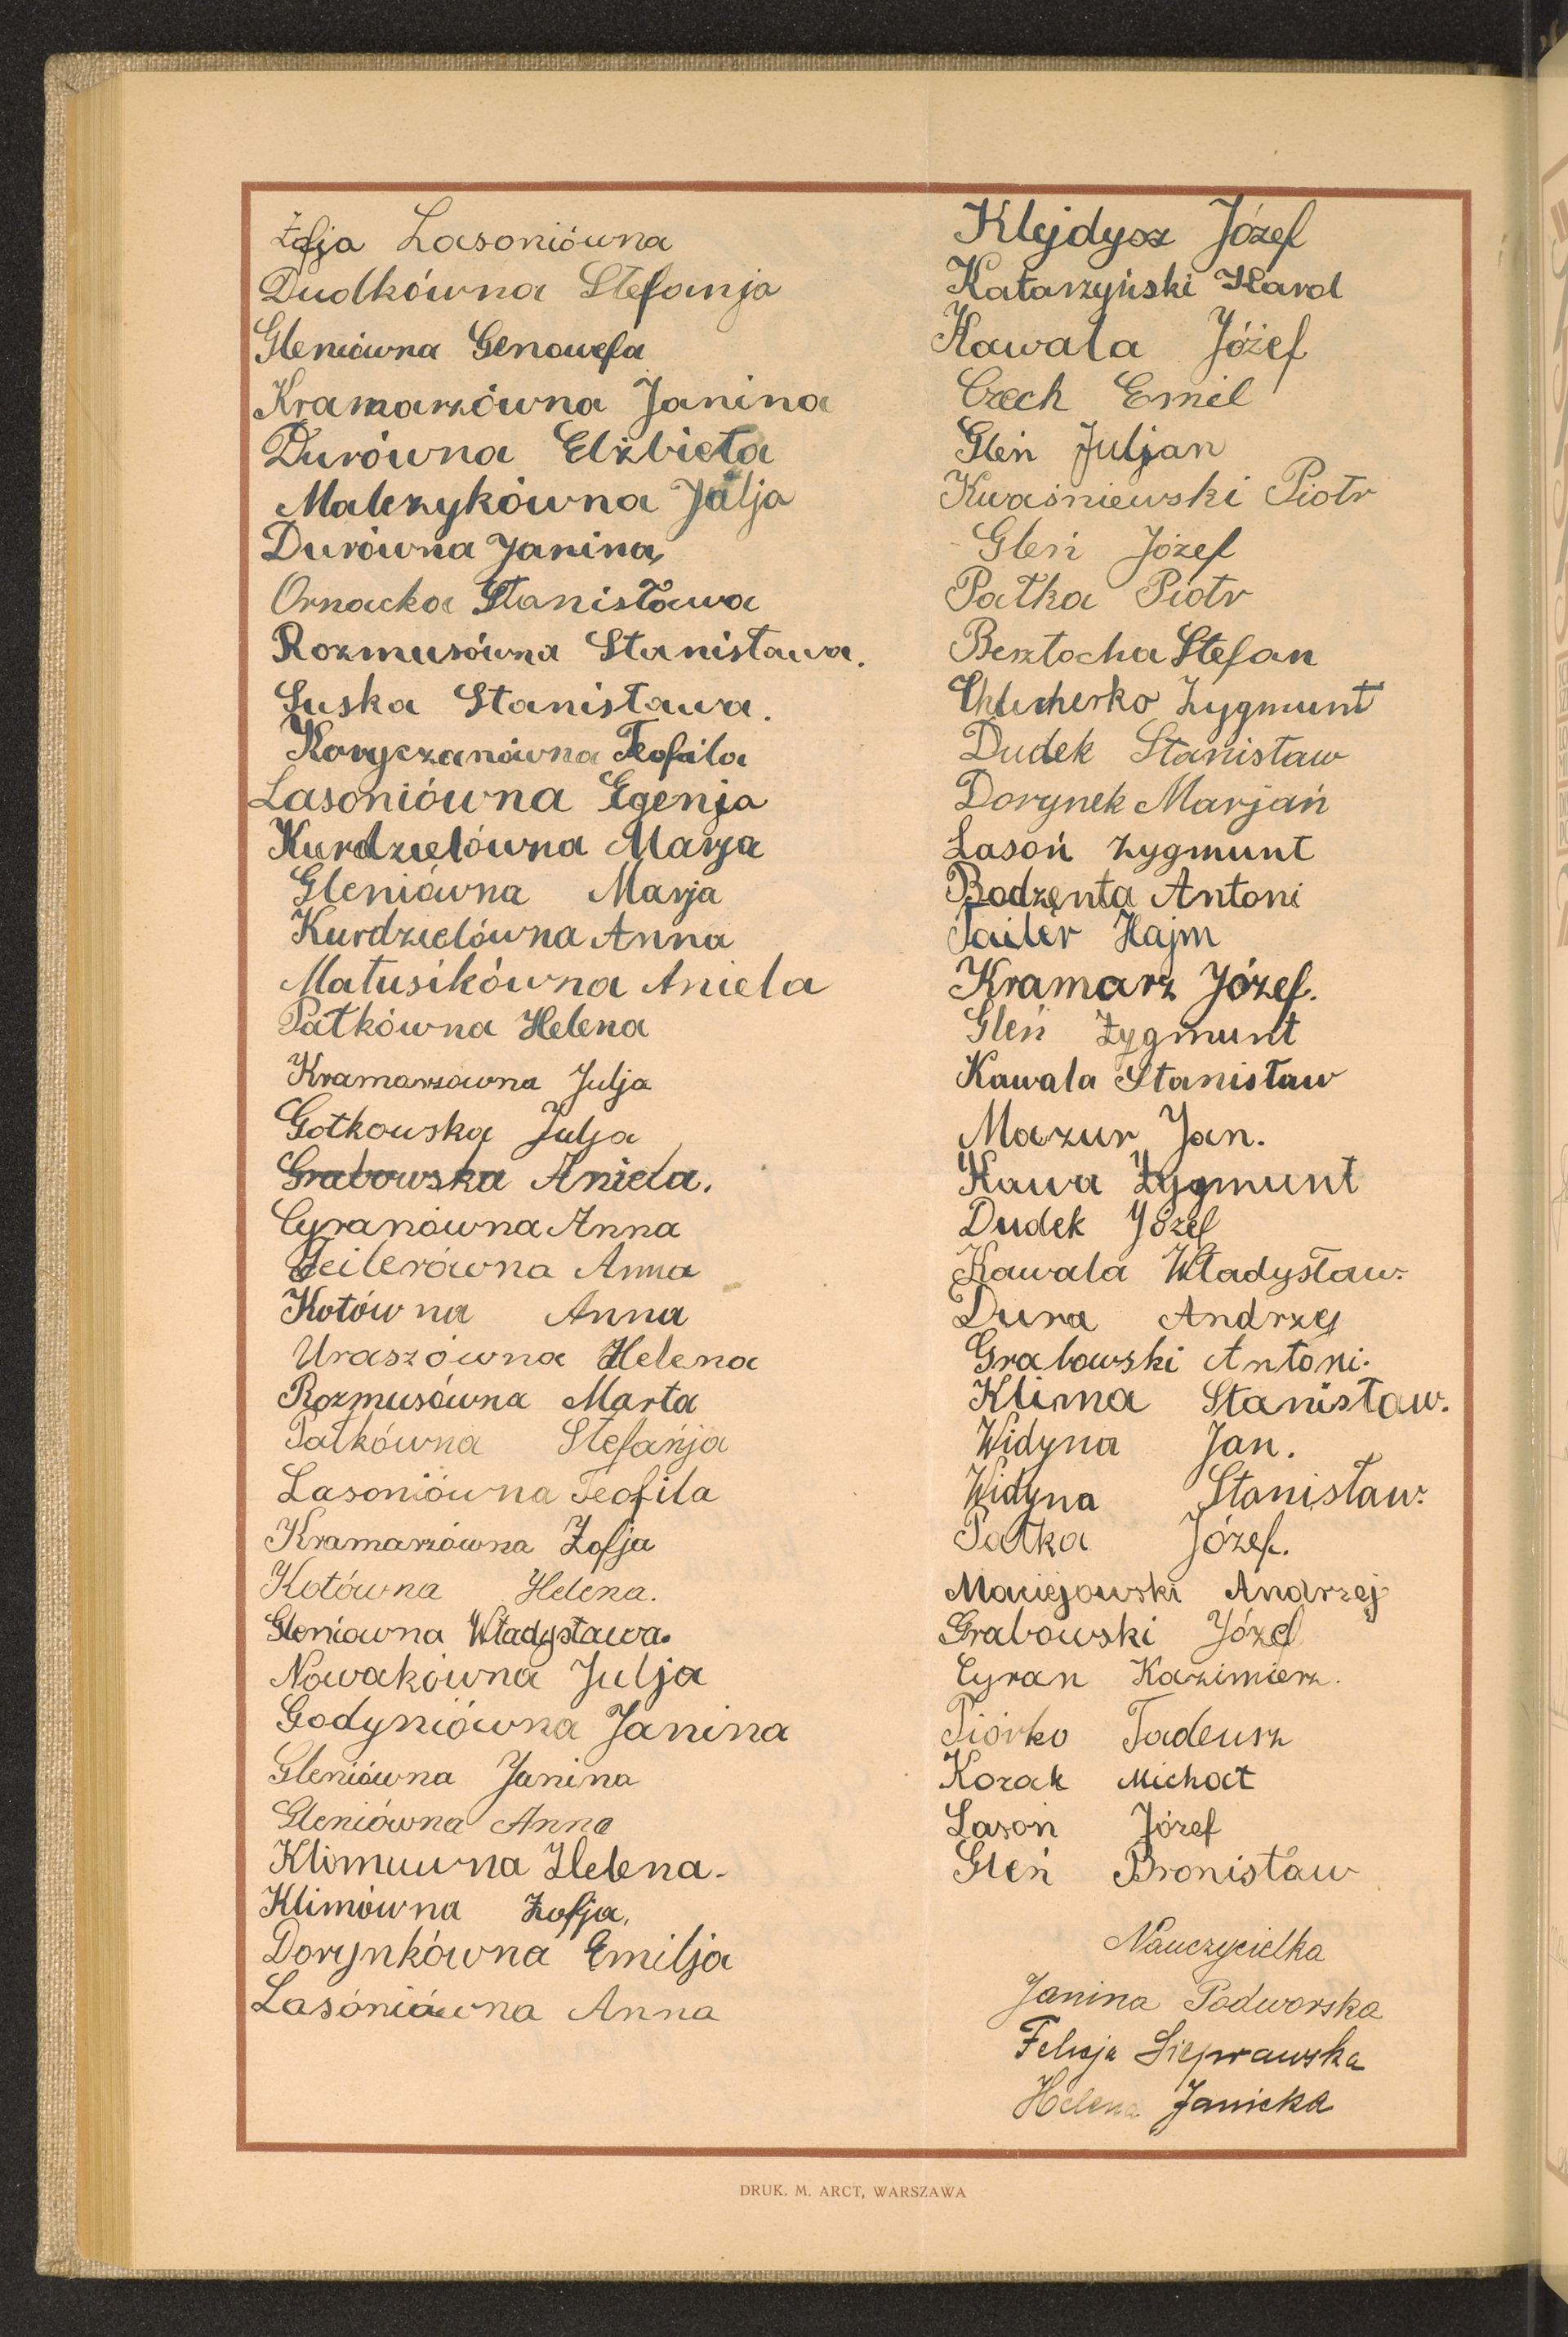 Zofja Lasoniówna
Dudkówna Stefanja
Gleniówna Genowefa
Kramarzówna Janina
Durówna Elżbieta
Malczykówna Julja
Durówna Janina
Ornacka Stanisława
Rozmusówna Stanisława.
Suska Stanisława.
Koryczanówna Teofila
Lasoniówna Egenja
Kurdzielówna Marja
Gleniówna Marja
Kurdzielówna Anna
Matusikówna Aniela
Patkówna Helena
Kramarzówna Julja
Gotkowska Julja
Grabowska Aniela.
Cyranówna Anna
Feilerówna Anna
Kotówna Anna
Uraszówna Helena
Rozmusówna Marta
Patkówna Stefanja
Lasoniówna Teofila
Kramarzówna Zofja
Kotówna Helena.
Gleniówna Władysława.
Nowakówna Julja
Godyniówna Janina
Gleniówna Janina
Gleniówna Anna
Klimuwna Helena.
Klimówna Zofja.
Dorynkówna Emilja
Lasóniówna Anna
Klejdysz Józef
Katarzyński Karol
Kawala Józef
Czech Emil
Gleń Juljan
Kwaśniewski Piotr
Gleń Józef
Patka Piotr
Besztocha Stefan
Zygmunt
Dudek Stanisław
Dorynek Marjań
Lasoń Zygmunt
Bodzęnta Antoni
Failer Hajm
Kramarz Józef.
Gleń Zygmunt
Kawala Stanisław
Mazur Jan.
Kawa Zygmunt
Dudek Józef
Kawala Władysław.
Dura Andrzej
Grabowski Antoni.
Klima Stanisław.
Widyna Jan.
Widyna Stanisław.
Patka Józef.
Maciejowski Andrzej
Grabowski Józef
Cyran Kazimierz.
Piórko Tadeusz
Kozak Michał
Lasoń Józef
Gleń Bronisław
Nauczycielka
Janina Podworska
Felicja Sieprawska
Helena Janicka
DRUK. M. ARCT, WARSZAWA